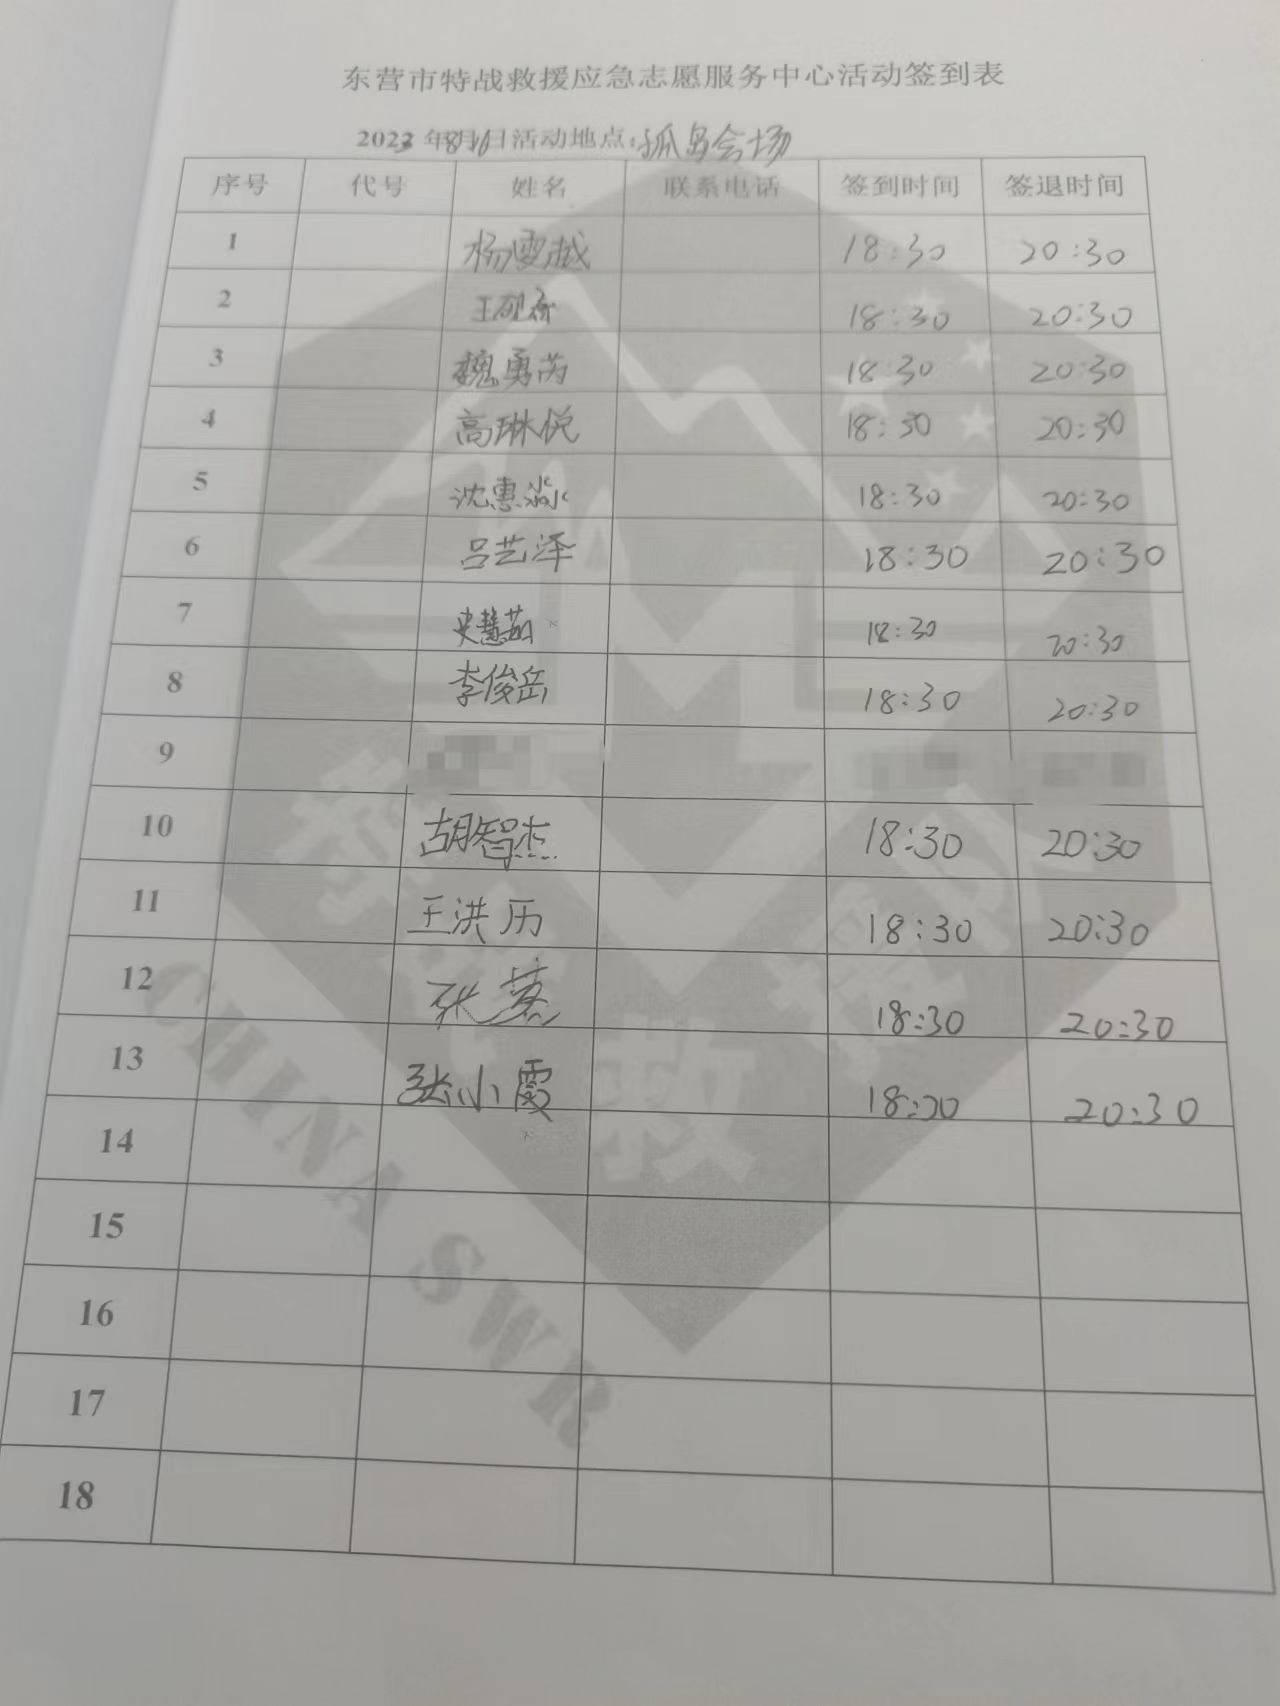 东营市特战救援应急志愿服务中心活动签到表
2023年8月16日活动地点:孤岛会场
序号 代号 姓名 联系电话 签到时间 签退时间
1 杨雪越 18:30 20:30
2 18:30 20:30
3 魏勇芮 18:30 20:30
4 高琳悦 18:30 20:30
5 沈惠淼 18:30 20:30
6 吕艺泽 18:30 20:30
7 史慧茹 18:30 20:30
8 李俊岳 18:30 20:30
9
10 胡智杰 18:30 20:30
11 王洪历 18:30 20:30
12 张 18:30 20:30
13 张小霞 18:30 20:30
14
15
16
17
18
特战救援队
CHINA SWR